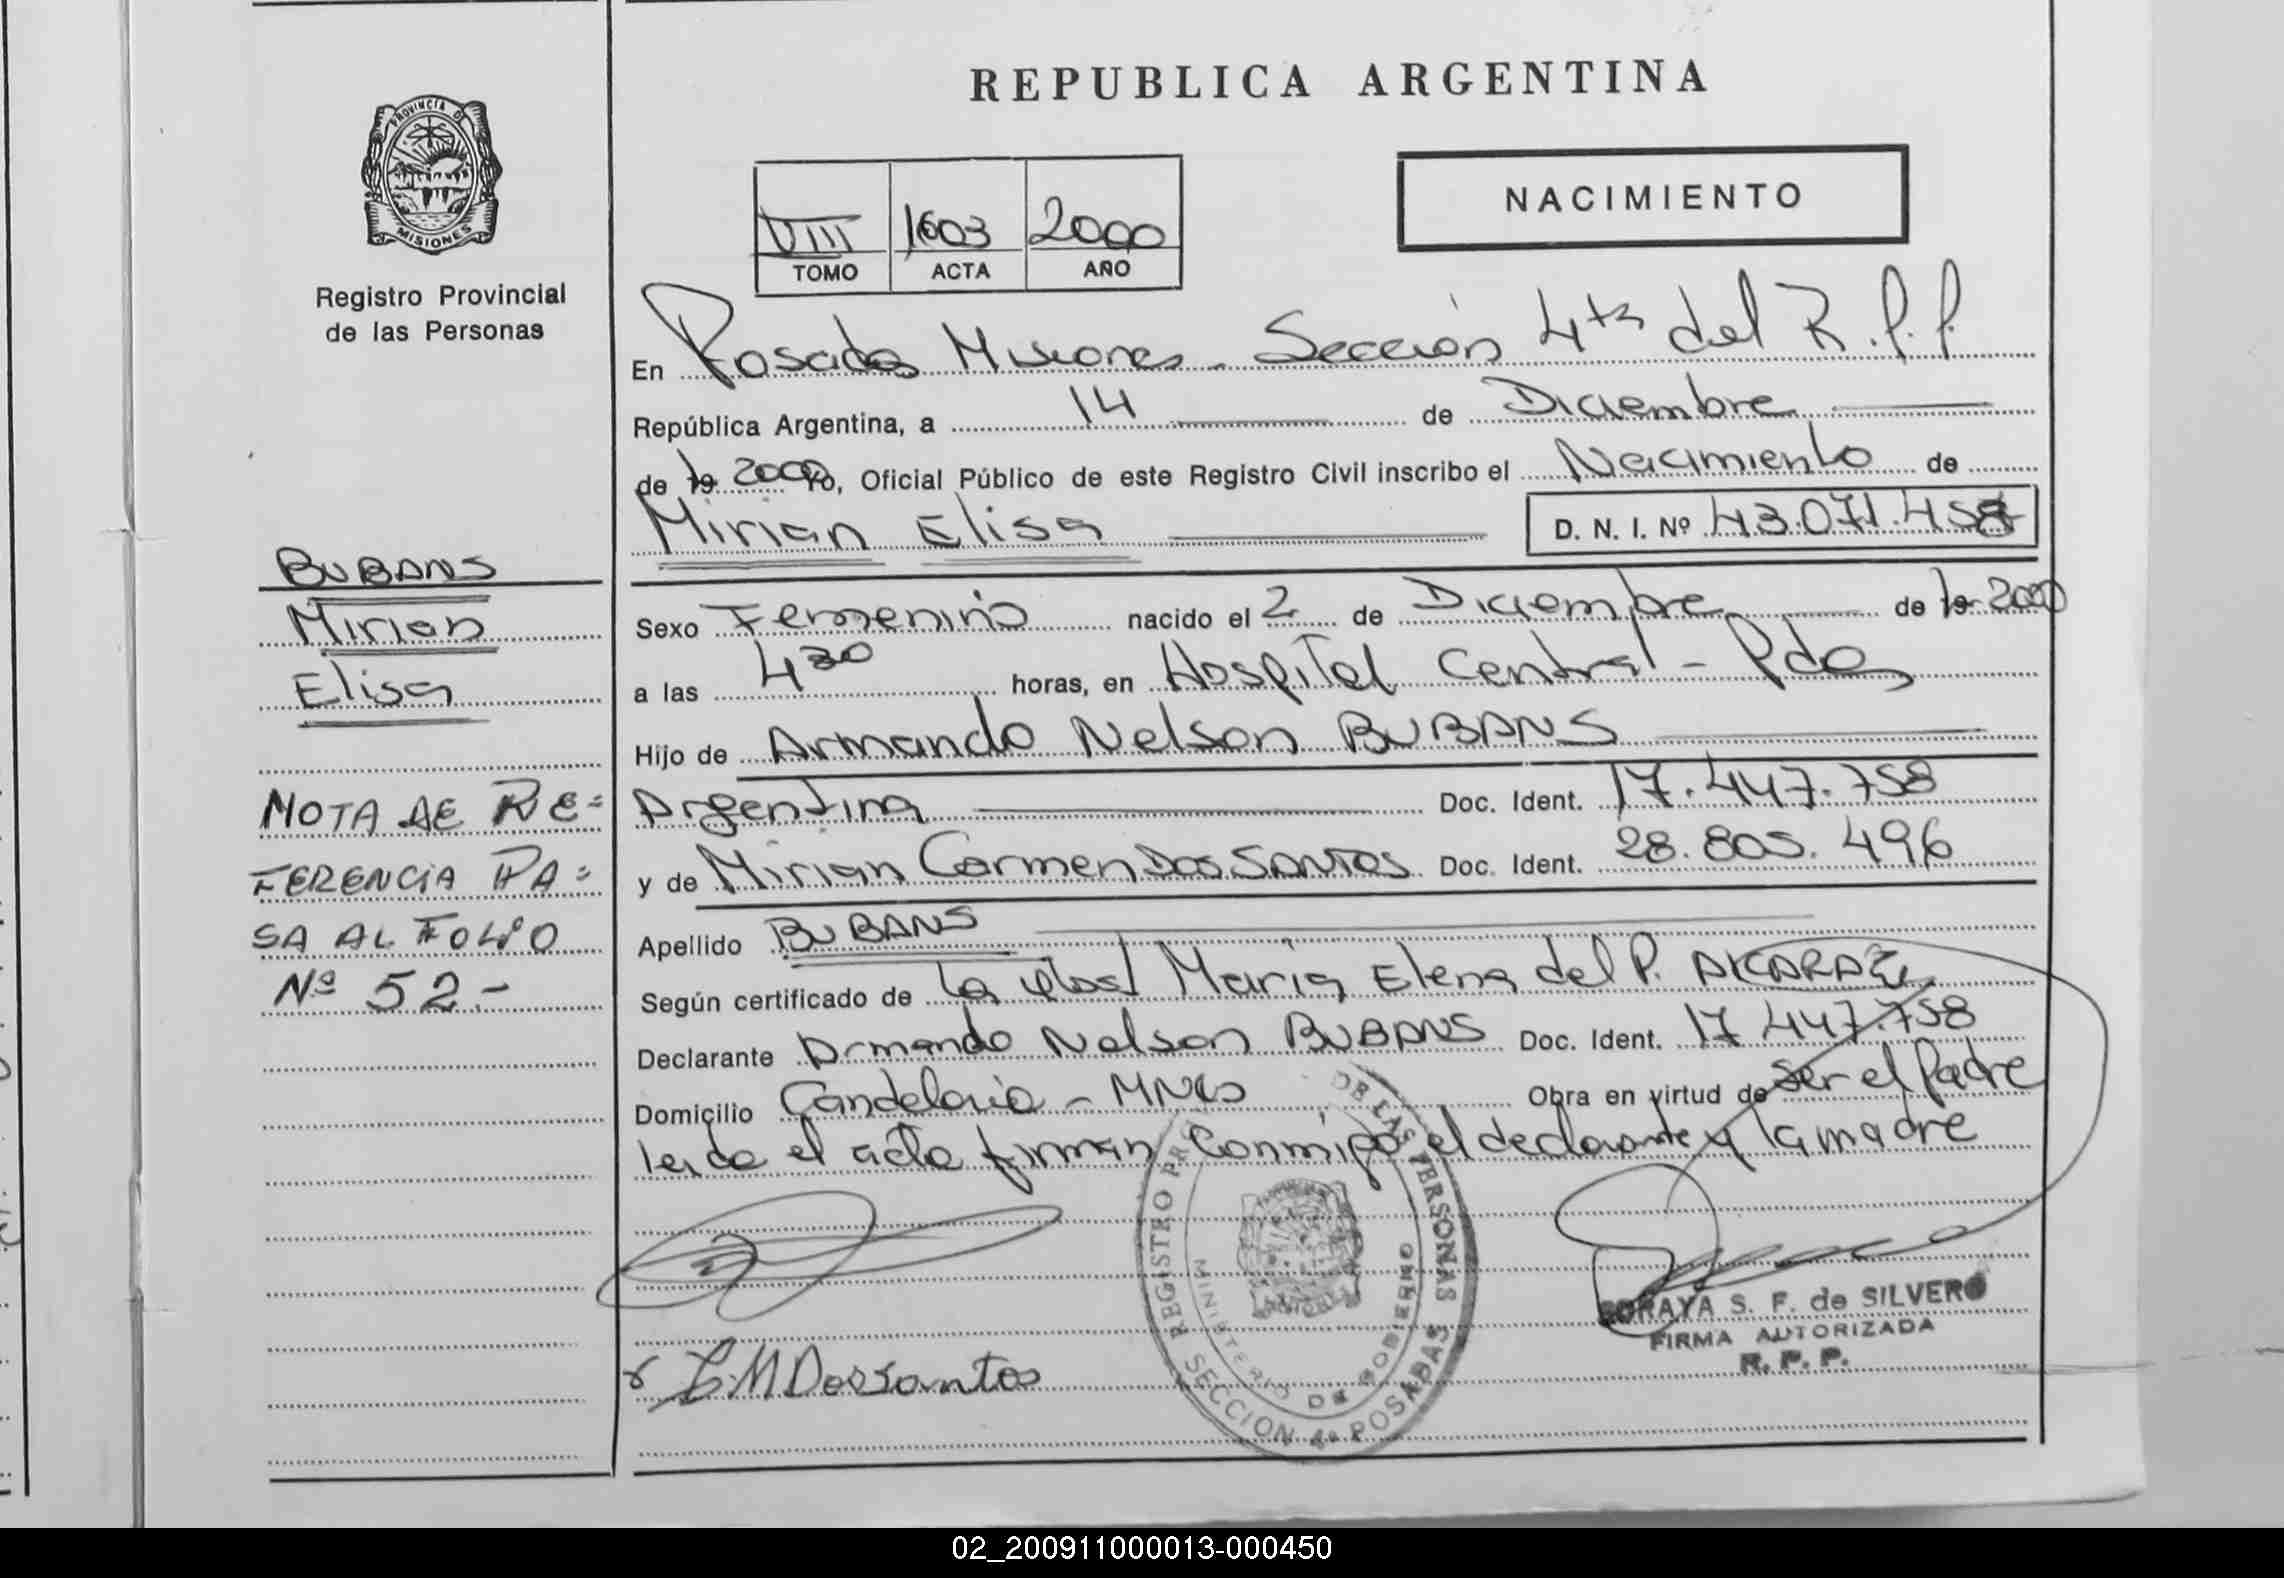 REPUBLICA ARGENTINA
PROVINCIA DE
MISIONES
Registro Provincial
de las Personas
VIII 1603 2000
TOMO ACTA AÑO
NACIMIENTO
En Posadas Misiones - Sección 4ta del R.P.P
República Argentina, a 14 de Diciembre
de 19 2000 Yo, Oficial Público de este Registro Civil inscribo el Nacimiento de
Mirian Elisa D. N. I. Nº 43.071.458
BUBANS
Mirian
Elisa
NOTA DE RE=
FERENCIA PA=
SA AL FOLIO
Nº 52.-
Sexo Femenino nacido el 2 de Diciembre de 19 2000
a las 4 30 horas, en Hospital Central - Pdas
Hijo de Armando Nelson BUBANS
Argentina Doc. Ident. 17.447.758
y de Mirian Carmen DOS SANTOS Doc. Ident. 28.805.496
Apellido BUBANS
Según certificado de la Obst María Elena del P. ALCARAZ
Declarante Armando Nelson BUBANS Doc. Ident. 17 447.758
Domicilio Candelaria - MNES Obra en virtud de ser el Padre
leida el acta firman conmigo el declarante y la madre
REGISTRO PROV DE LAS PERSONAS
MINISTERIO DE GOBIERNO
SECCION 4a POSADAS
SORAYA S. F. de SILVERO
FIRMA AUTORIZADA
R. P. P.
Dossantos
02_200911000013-000450